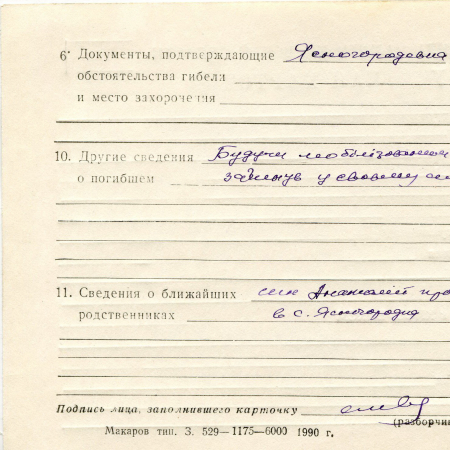 6· Документы, подтверждающие
обстоятельства гибели
и место захоронения
10. Другие сведения Будучи
о погибшем загинув у своєму
11. Сведения о ближайших син Анатолий
родственниках в с. Ясногородка
Подпись лица, заполнившего карточку
(разборчи
Макаров тип. З. 529—1175—6000 1990 г.